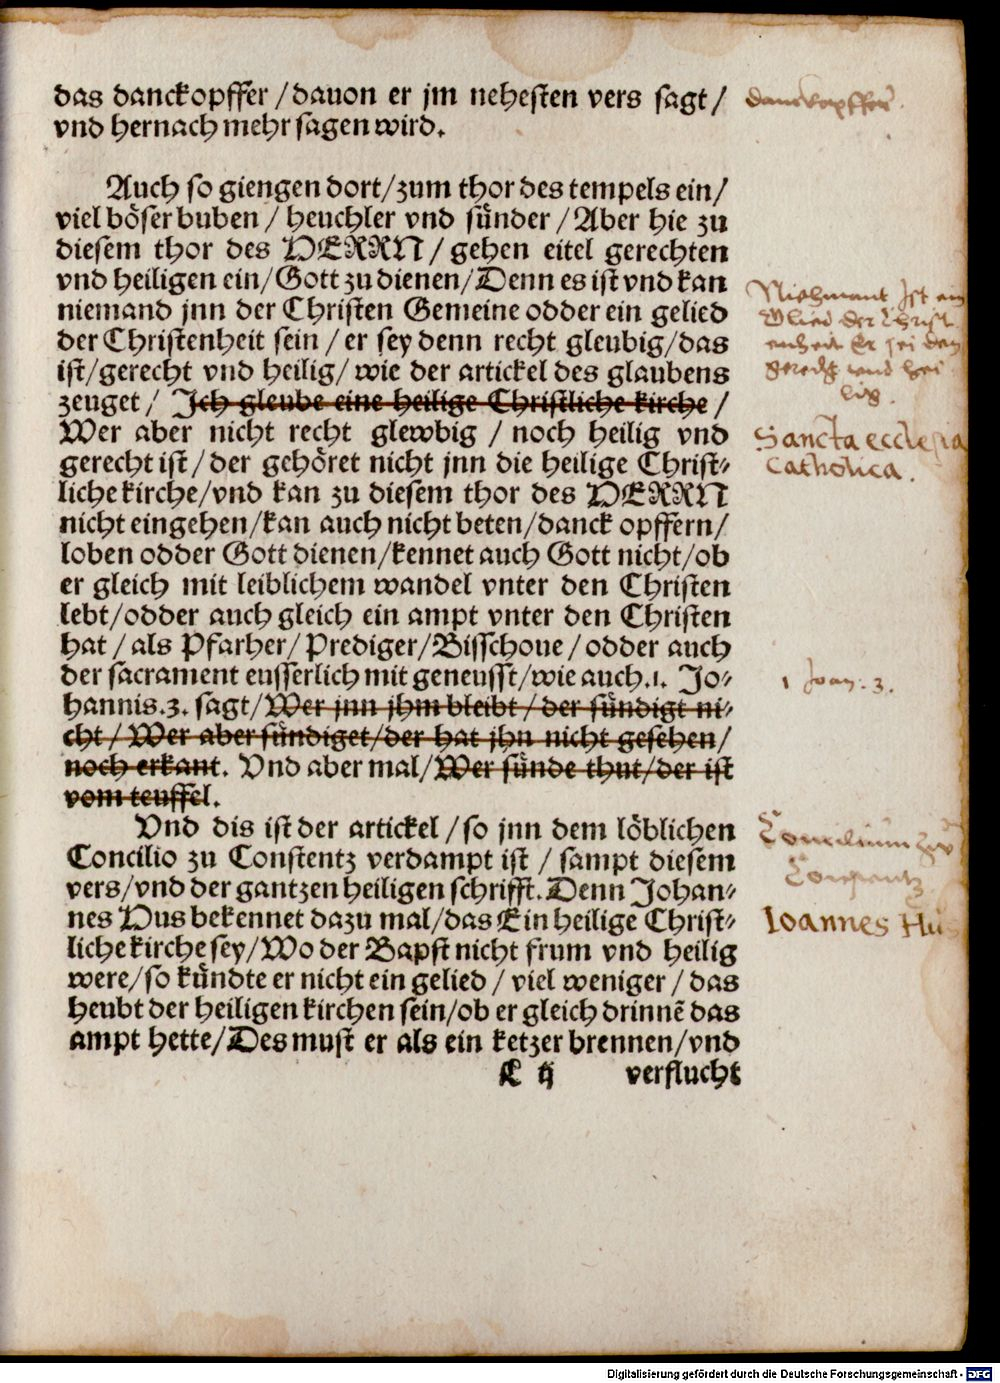 das danckopffer / dauon er jm nehesten vers sagt /
vnd hernach mehr sagen wird.
danckopffer.
Auch so giengen dort / zum thor des tempels ein /
viel böser buben / heuchler vnd sünder / Aber hie zu
diesem thor des HERRN / gehen eitel gerechten
vnd heiligen ein / Gott zu dienen / Denn es ist vnd kan
niemand jnn der Christen Gemeine odder ein gelied
der Christenheit sein / er sey denn recht gleubig / das
ist / gerecht vnd heilig / wie der artickel des glaubens
zeuget / Ich gleube eine heilige Christliche kirche /
Wer aber nicht recht glewbig / noch heilig vnd
gerecht ist / der gehöret nicht jnn die heilige Christ-
liche kirche / vnd kan zu diesem thor des HERRN
nicht eingehen / kan auch nicht beten / danck opffern /
loben odder Gott dienen / kennet auch Gott nicht / ob
er gleich mit leiblichem wandel vnter den Christen
lebt / odder auch gleich ein ampt vnter den Christen
hat / als Pfarher / Prediger / Bisschoue / odder auch
der sacrament eusserlich mit geneusst / wie auch .1. Jo-
hannis .3. sagt / Wer jnn jhm bleibt / der sündigt ni-
cht / Wer aber sündiget / der hat jhn nicht gesehen /
noch erkant. Vnd aber mal / Wer sünde thut / der ist
vom teuffel.
Niehmant Ist ein
Glied der Christ
enheit Er sei den
gerecht vnd hei
lig.
Sancta ecclesia
catholica.
1 Joan. 3.
Vnd dis ist der artickel / so jnn dem löblichen
Concilio zu Constentz verdampt ist / sampt diesem
vers / vnd der gantzen heiligen schrifft. Denn Johan-
nes Hus bekennet dazu mal / das Ein heilige Christ-
liche kirche sey / Wo der Bapst nicht frum vnd heilig
were / so kündte er nicht ein gelied / viel weniger / das
heubt der heiligen kirchen sein / ob er gleich drinnē das
ampt hette / Des must er als ein ketzer brennen / vnd
Concilium zu
Costentz
Ioannes Hus
C ij verflucht
Digitalisierung gefördert durch die Deutsche Forschungsgemeinschaft - DFG